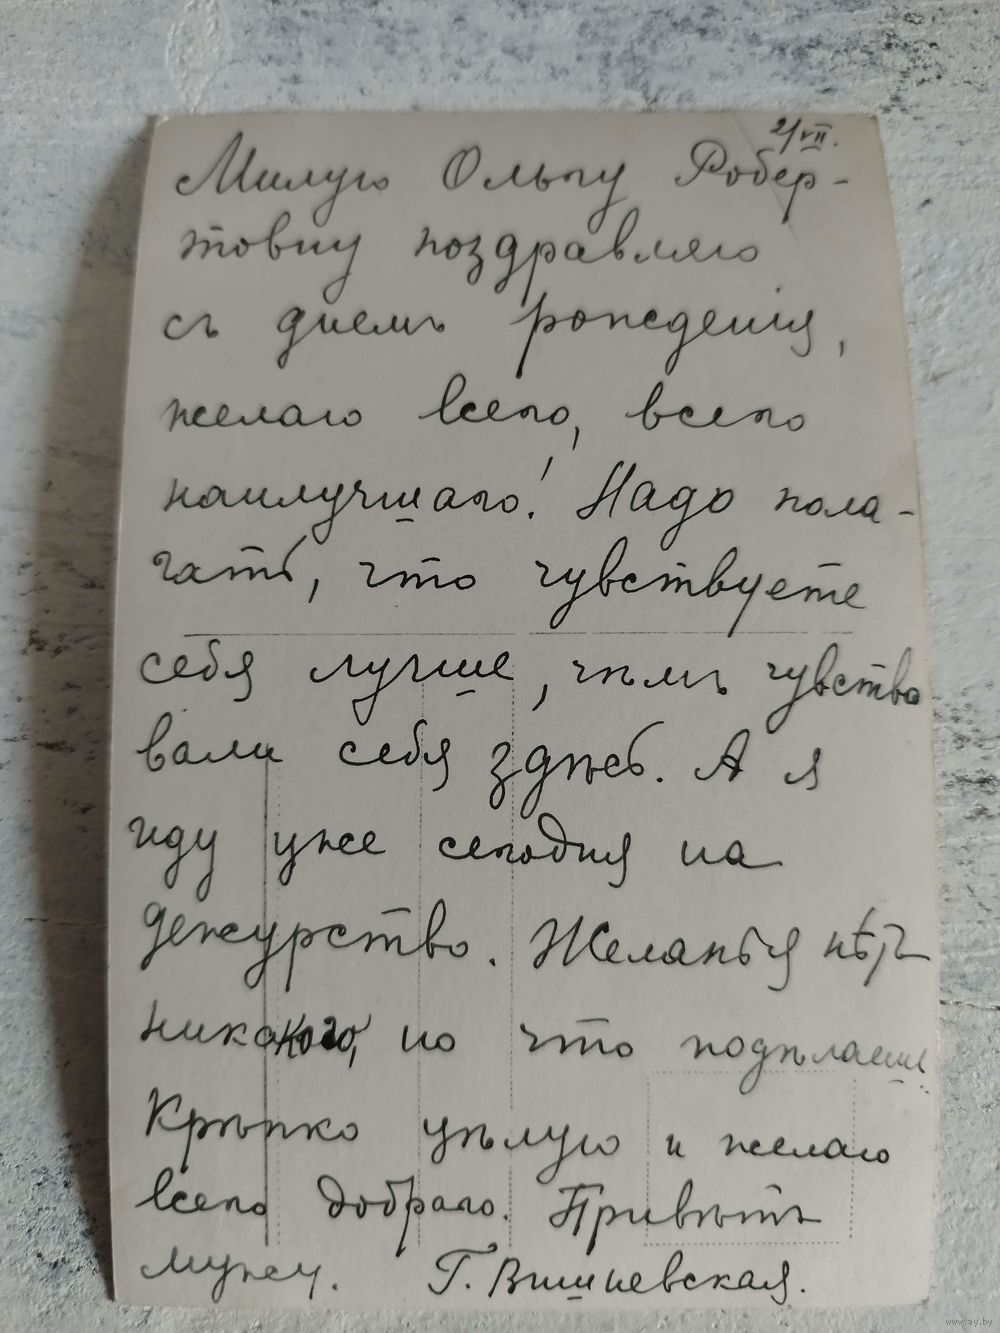 2/VII.
Милую Ольгу Робер-
товну поздравляю
съ днемъ рожденія,
желаю всего, всего
наилучшаго! Надо пола-
гать, что чувствуете
себя лучше, чѣмъ чувство
вали себя здѣсь. А я
иду уже сегодня на
дежурство. Желанья нѣтъ
никакого, но что подѣлаешь
Крѣпко цѣлую и желаю
всего добраго. Привѣтъ
мужу. Г. Вишневская.
www.ay.by